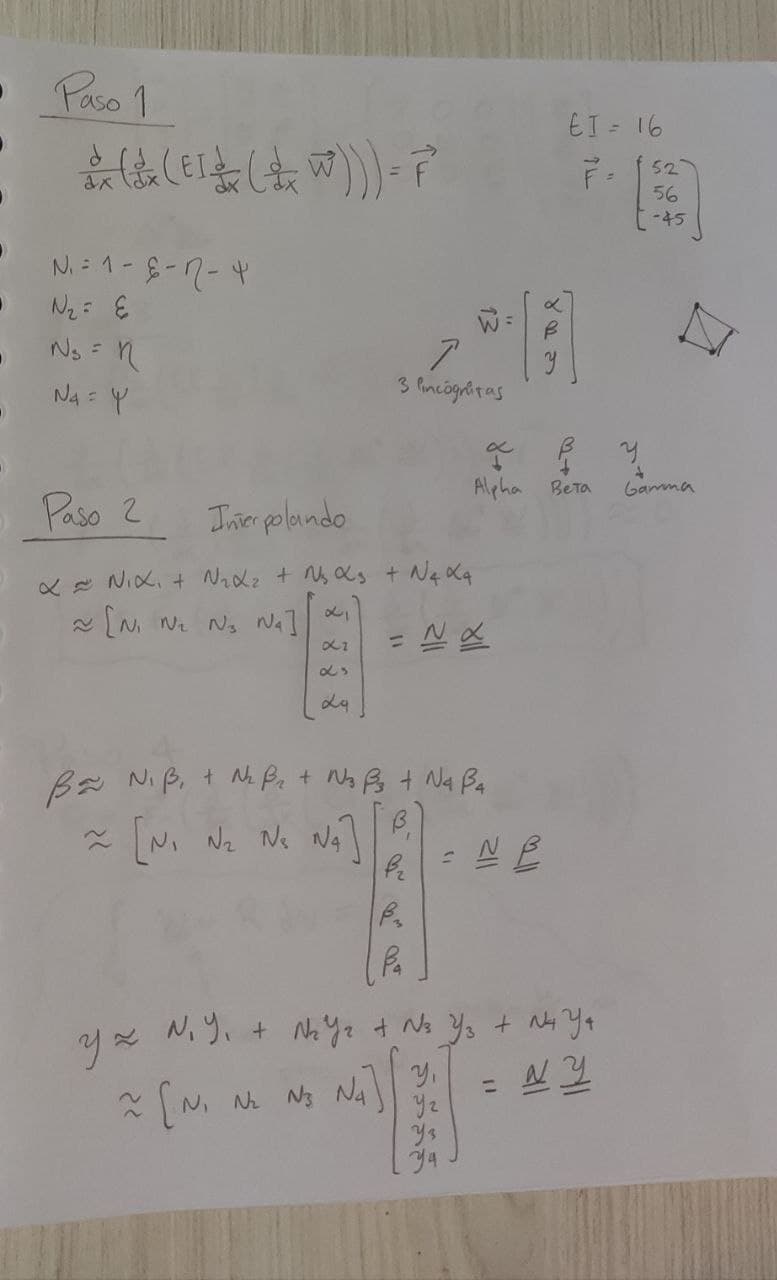 Paso 1
EI = 16
d/dx (d/dx (EI d/dx (d/dx W⃗))) = F⃗
F⃗ = [52
56
-45]
N₁ = 1 - ξ - η - ψ
N₂ = ξ
N₃ = η
N₄ = ψ
W⃗ = [α
β
γ]
3 incógnitas
α β γ
Alpha Beta Gamma
Paso 2 Interpolando
α ≈ N₁α₁ + N₂α₂ + N₃α₃ + N₄α₄
≈ [N₁ N₂ N₃ N₄] [α₁
α₂
α₃
α₄] = N α
β ≈ N₁β₁ + N₂β₂ + N₃β₃ + N₄β₄
≈ [N₁ N₂ N₃ N₄] [β₁
β₂
β₃
β₄] = N β
γ ≈ N₁γ₁ + N₂γ₂ + N₃γ₃ + N₄γ₄
≈ [N₁ N₂ N₃ N₄] [γ₁
γ₂
γ₃
γ₄] = N γ